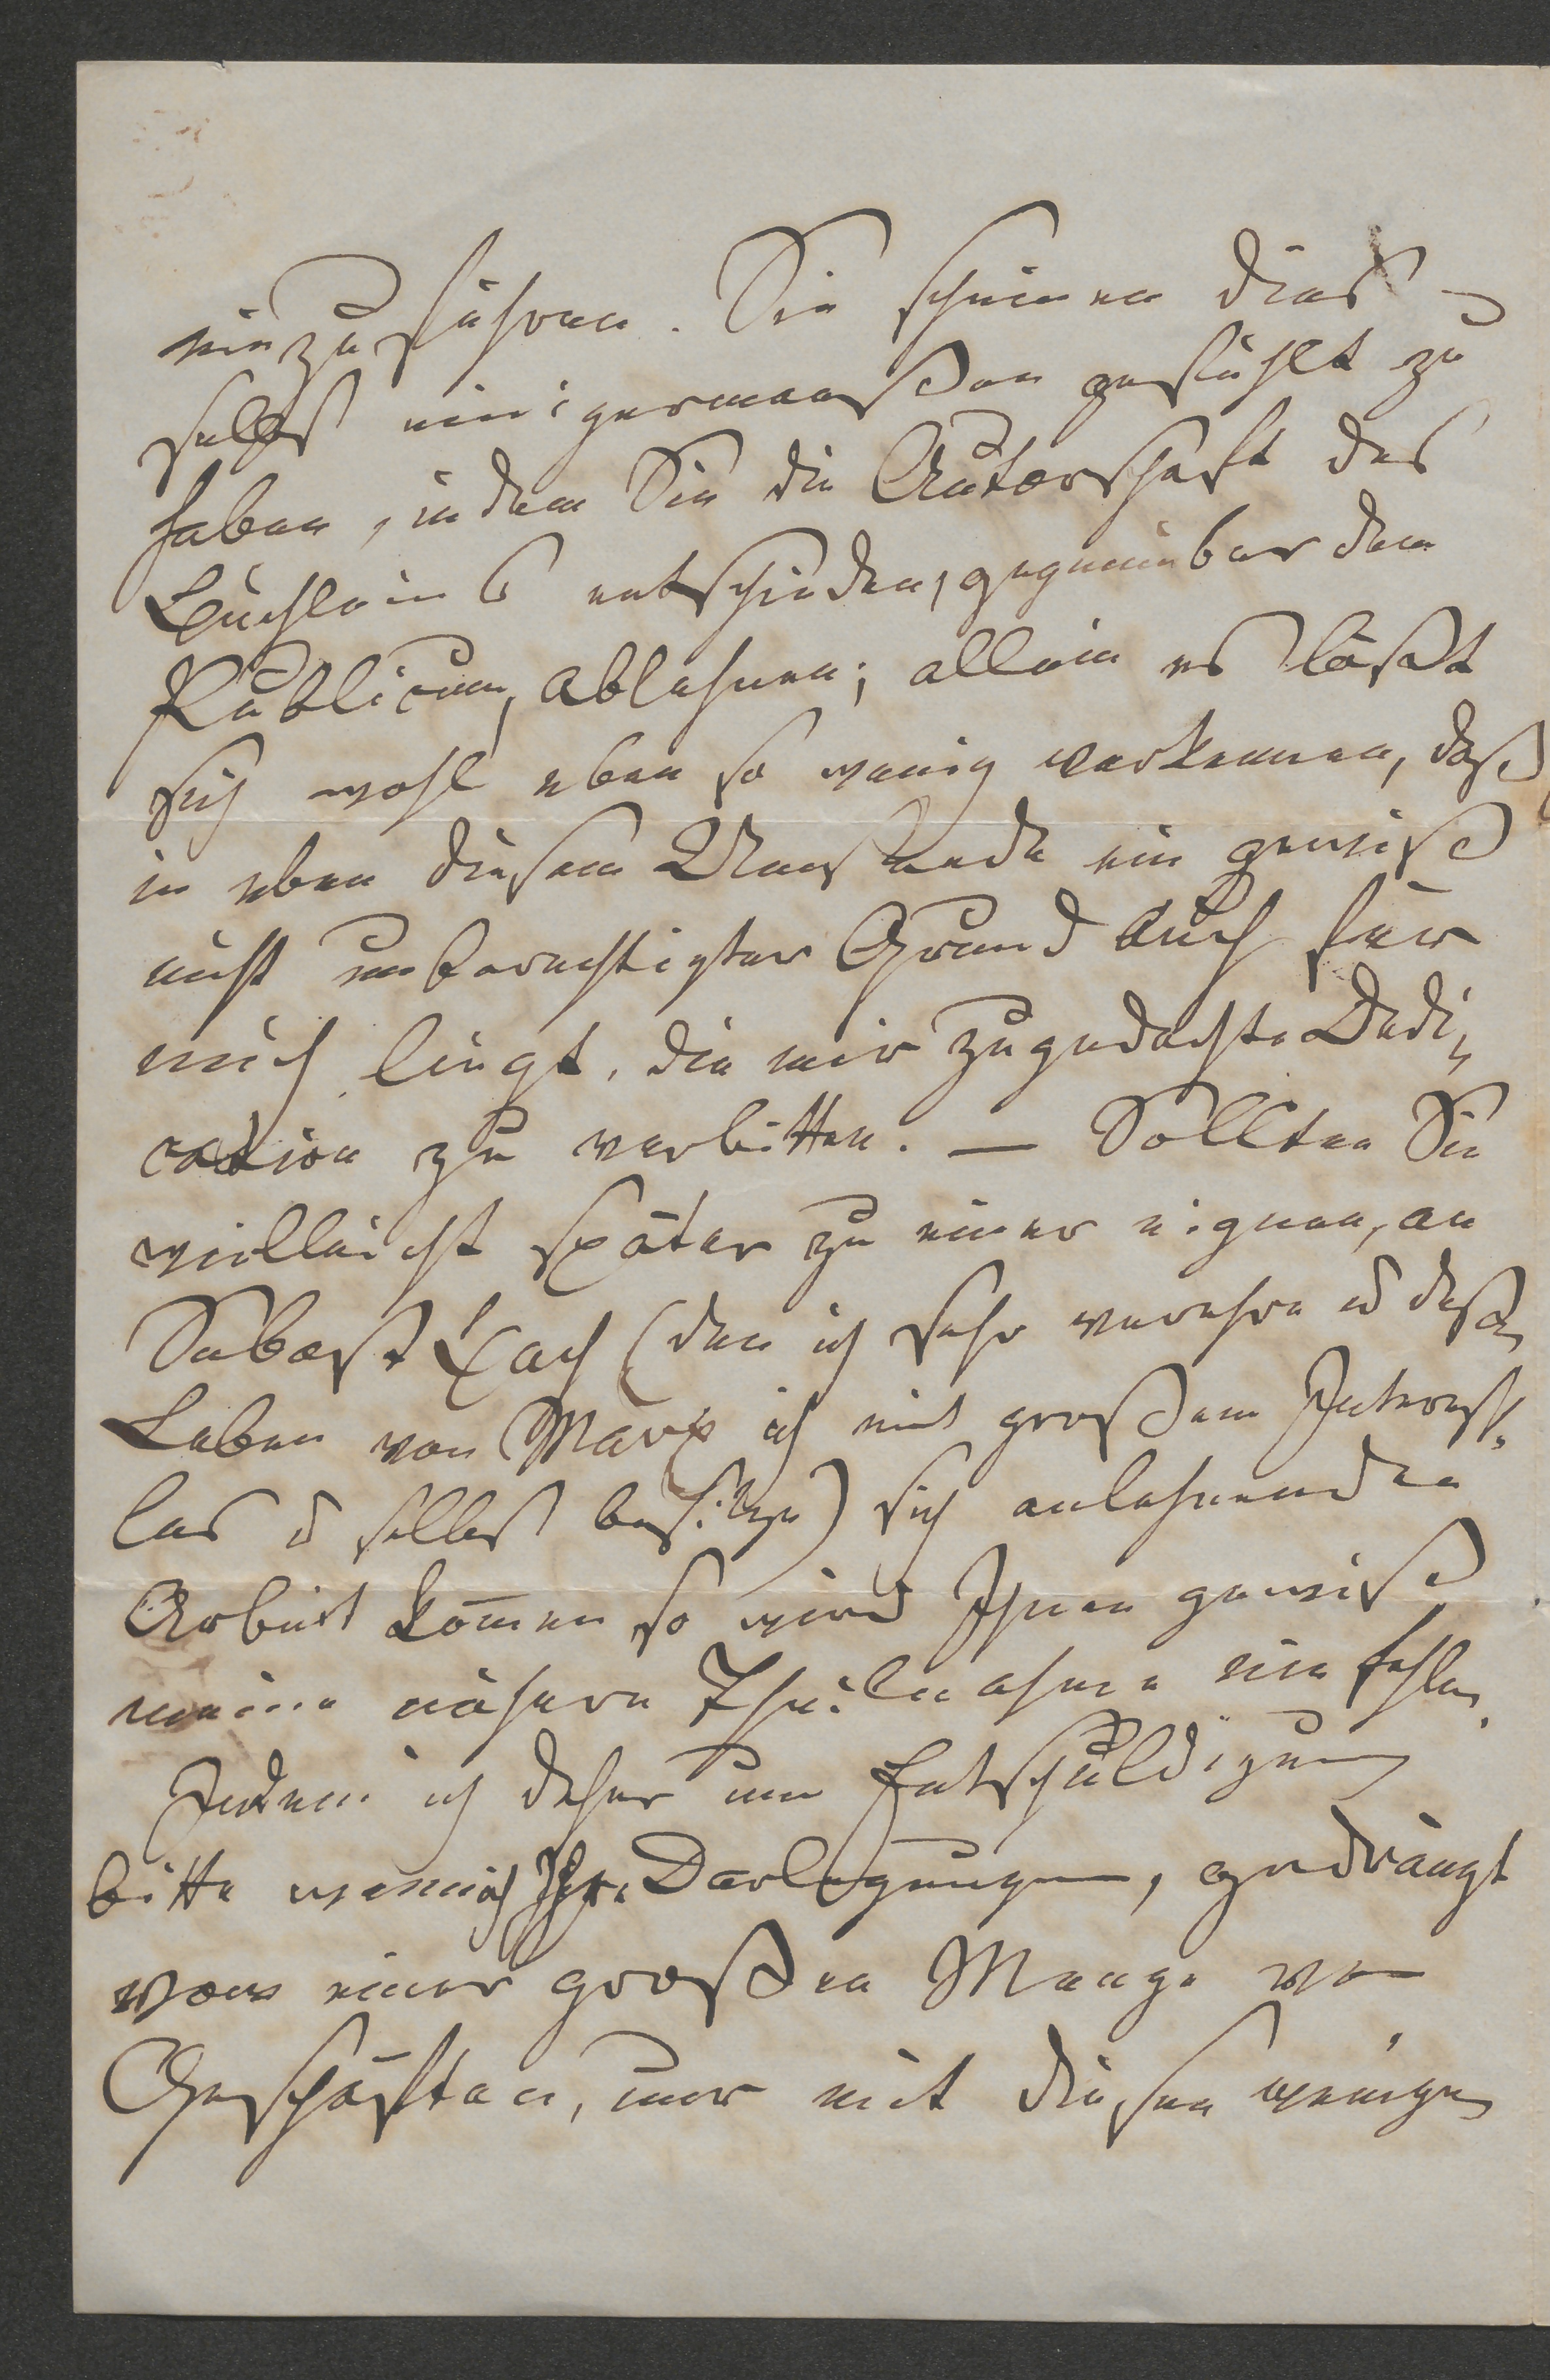 einzuführen. Sie scheinen dies
selbst einigermaaßen gefühlt zu
haben, indem Sie die Autorschaft des
Büchleins entschieden, gegenüber dem
Publicum, ablehnen; allein es läßt
sich wohl eben so wenig verkennen, daß
in eben diesem Umstande ein gewiß
nicht unberechtigter Grund auch für
mich liegt, die mir zugedachte Dedi¬
cation zu verbitten. — Sollten Sie
vielleicht später zu einer eignen, an
Sebast Bach (den ich sehr verehre u deßen
Leben von Marx ich mit großem Interesse
las u selbst besitze) sich anlehnenden
Arbeit kom̄en so wird Ihnen gewiß
meine nähere Theilnahme nie fehlen.
Indem ich daher um Entschuldigung
bitte wenn ich Ihre Darlegungen, gedrängt
von einer großen Menge von
Geschäften, nur mit diesen wenigen